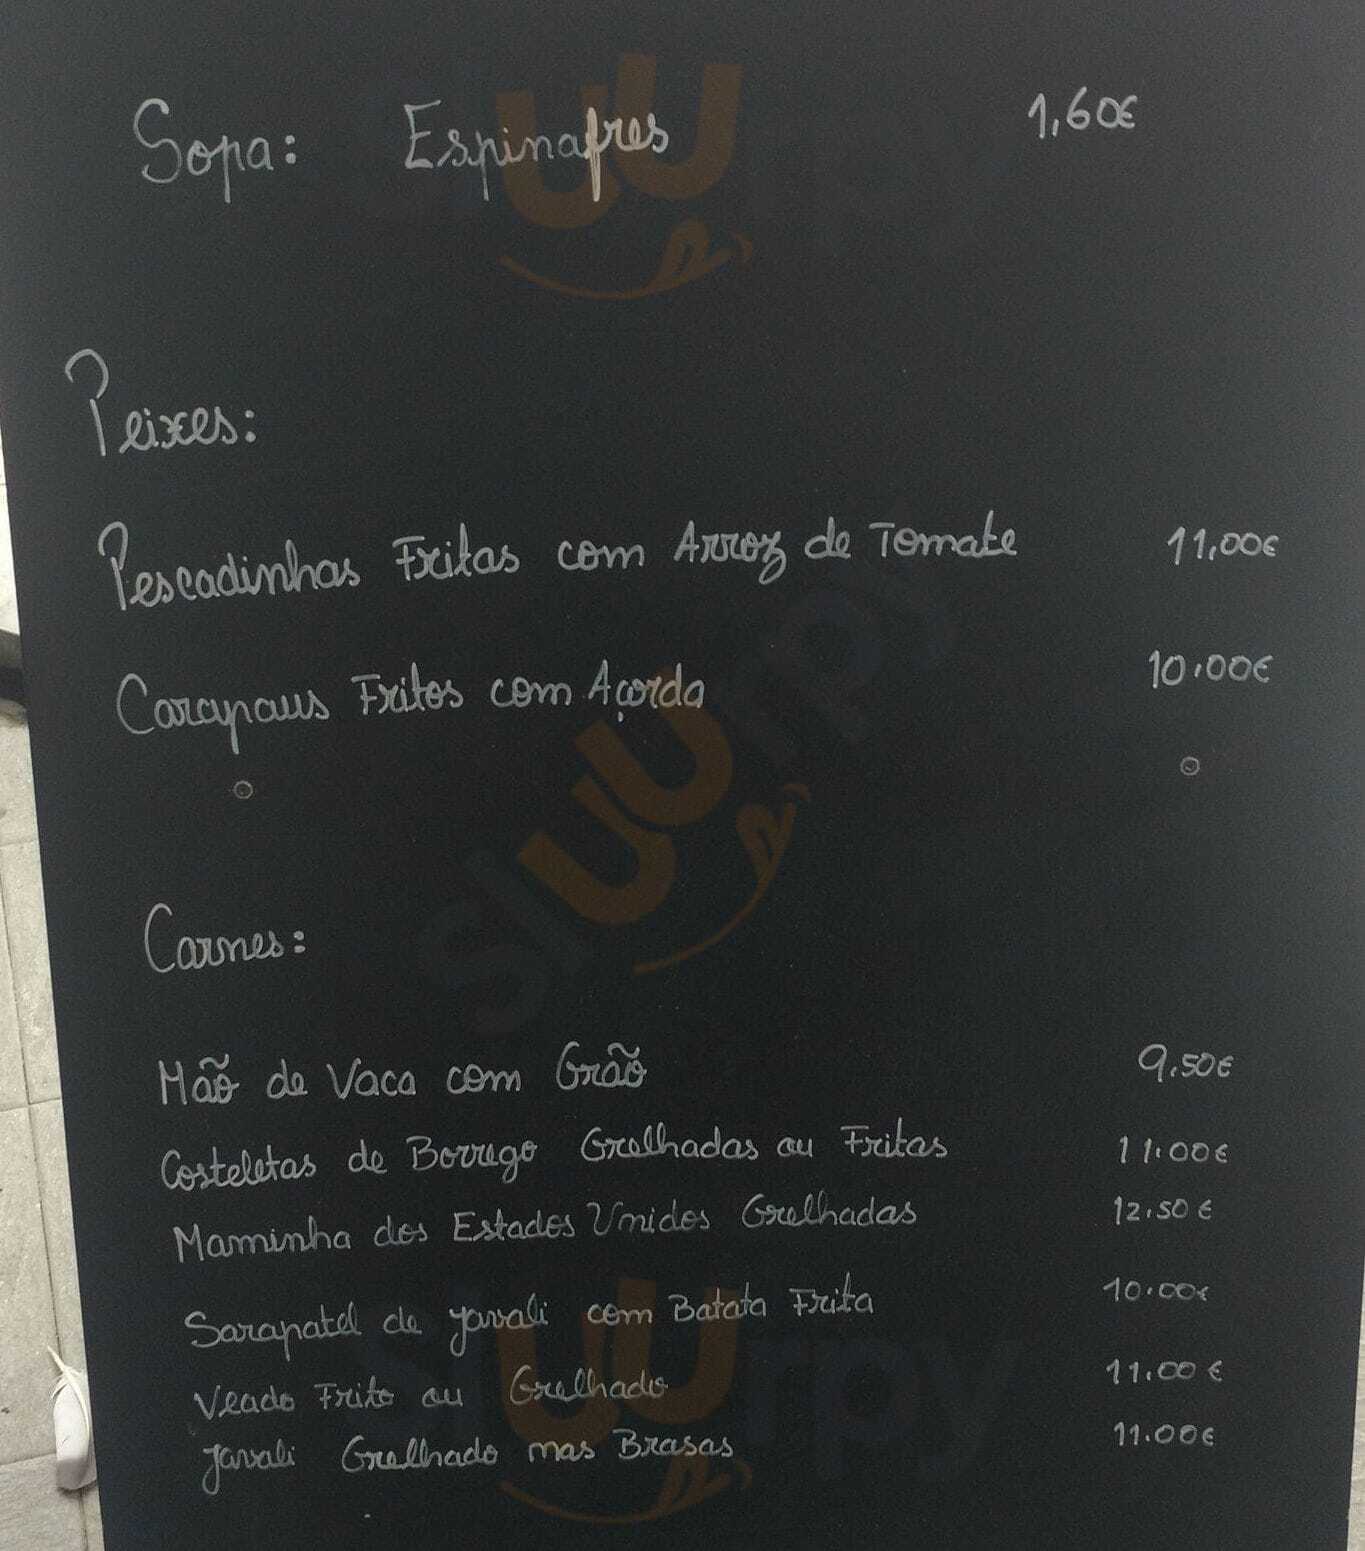 Sopa: Espinafres 1,60€
Peixes:
Pescadinhas Fritas com Arroz de Tomate 11,00€
Carapaus Fritos com Açorda 10.00€
Carnes:
Mão de Vaca com Grão 9.50€
Costeletas de Borrego Grelhadas ou Fritas 11.00€
Maminha dos Estados Unidos Grelhadas 12.50€
Sarapatel de javali com Batata Frita 10.00€
Veado Frito ou Grelhado 11.00€
javali Grelhado nas Brasas 11.00€
slurpy
slurpy
slurpy